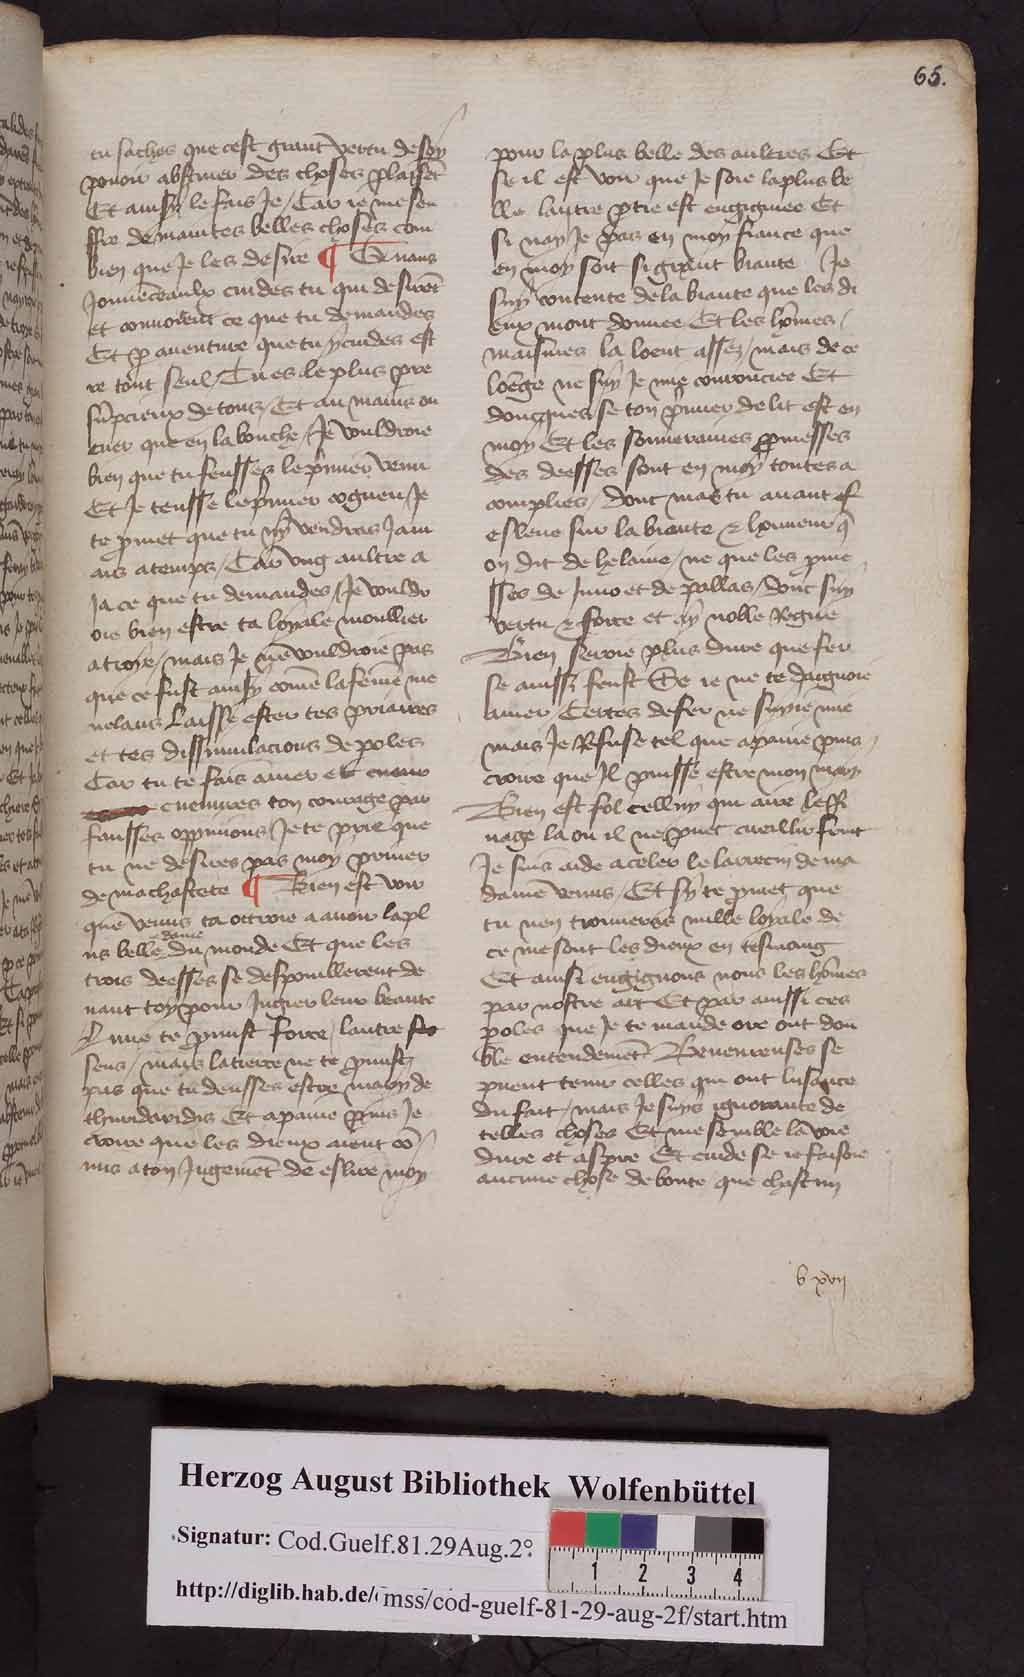 65.
tu saches que cest grant vertu de soy
pouoir abstiner des choses plaisēt
Et ainsy le fais Je / Car ie me seu
ffre de maintes belles choses com
bien que Je les desire ¶ Quans
Jouuēceaulx cuides tu qui desirēt
et conuoitent ce que tu demandes
Et p auenture que tu y cuides est
re tout seul / Tu es le plus pre
sūpcieux de tous / Et au mains ou
cuer que en la bouche / Je vouldroie
bien que tu feusses le pmier venu
Et Je teusse le pmier cogneu Je
te pmet que tu ny vendras Jam
ais a temps / Car vng aultre a
Ja ce que tu demandes / Je vouldr
oie bien estre ta loyale moullier
a troye / mais Je nē vouldroie pas
que ce fust ainsy comē la femē me
nelaus Laisse ester tes priaires
et tes dissimulacions de poles
Car tu te fais amer et cueur
cuenures ton courage par
faulses oppinions / Je te prie que
tu ne desires pas moy priuer
de ma chastete ¶ Bien est voir
que venus ta ottroie a auoir la pl
us belle dame du monde Et que les
trois deesses se despoullerent de
uant toy pour Jugier leur beaute
Lune te pmist force / lautre
sens / mais la tierce ne te pmist
pas que tu deusses estre mary de
thindaridis Et a paine puis Je
croire que les dieux aient cō /
mis a ton Jugemēt de eslire moy
pour la plus belle des aultres Et
se il est voir que Je soie la plus be
lle lautre ptie est engignee Et
si nay Je pas en moy fiance que
en moy soit si grant biaute Je
suy contente de la biaute que les di
eux mont donnee Et les hōmes /
maismes la loent assez / mais de ce
loēge ne suy Je mie couroucee Et
doncques se ton pmier delit est en
moy Et les souueraines pmesses
des deesses sont en moy toutes a
complies / dont mas tu auant
esleue sur la biaute & honneur q̄
on dit de helaine / ne que les pme
sses de Juno et de pallas / dont suy
vertu & force et ay noble Regne
Bien seroie plus dure que fer
se ainssi feust Se ie ne te daignoie
amer / Certes de fer ne suyie mie
mais Je Refuse tel que a paine puis
croire que Il puisse estre mon mary
Bien est fol celluy qui aire le ssi
uage la ou il ne puet cueillir fruit
Je suis aide a celer le larrecin de ma
dame venus / Et sy te pmet que
tu nen trouueras nulle loyale de
ce me sont les dieux en tesmoing
Et ainsi engignons nous les hōmes
par nostre art Et par aussi ces
poles que Je te mande ore ont dou
ble entendemēt Beneureuses se
puent tenir celles qui ont lusance
du fait / mais Je suys ignorante de
telles choses Et me semble la voie
dure et aspre Et cuide se ie faisoie
aucune chose de bonte que chascun
b xvii
Herzog August Bibliothek Wolfenbüttel
Signatur: Cod.Guelf.81.29Aug.2°.
http://diglib.hab.de/mss/cod-guelf-81-29-aug-2f/start.htm
1 2 3 4